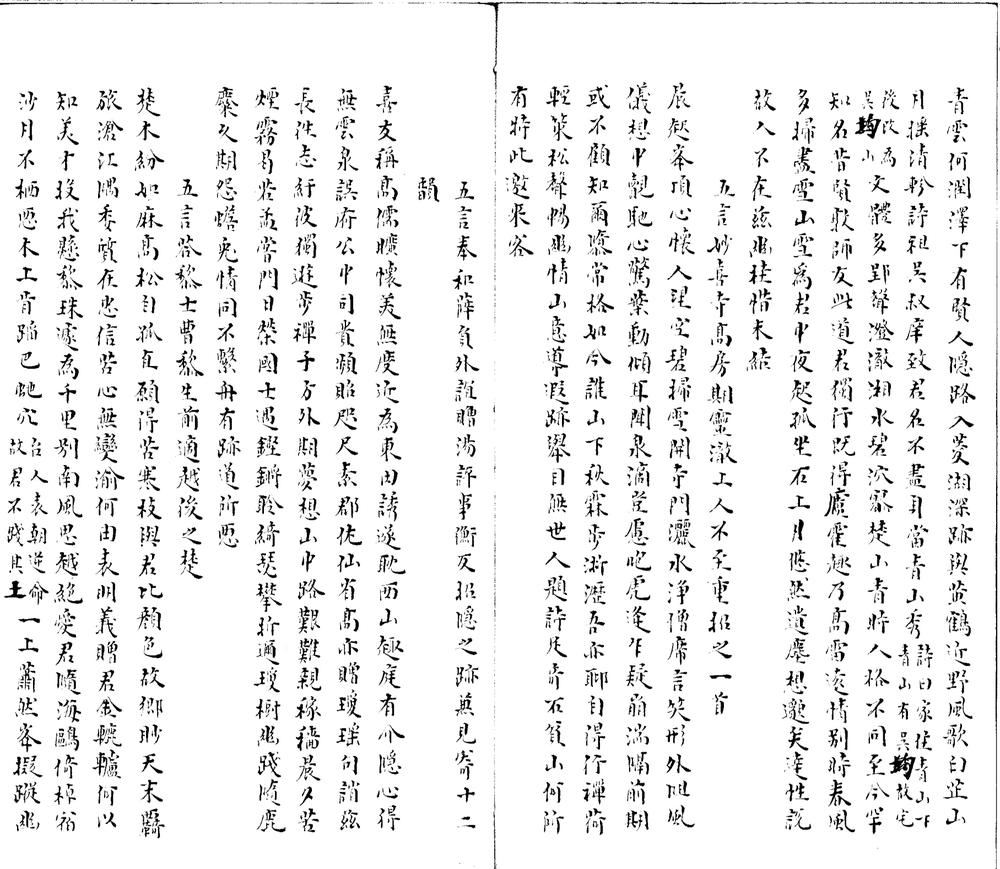 青雲何潤澤下有賢人隱路入菱湖深跡與黃鶴近野風歌白芷山
月搖清軫詩祖吳叔庠致君名不盡身當青山秀詩曰家住青山下青山有吳均故宅
後改為吳均山文體多郢聲澄澈湘水碧泬寥楚山青時人格不同至今罕
知名昔賢敦師友此道君獨行既得廬霍趣乃高雷遠情別時春風
多掃盡雪山雪爲君中夜起孤坐石上月悠然遺塵想邈矣達性說
故人不在茲幽桂惜未結
五言妙喜寺高房期靈澈上人不至重招之一首
晨起峯頂心懷人望空碧掃雪開寺門灑水淨僧席言笑形外阻風
儀想中覿馳心驚葉動傾耳聞泉滴豈慮咆虎逢乍疑崩湍隔前期
或不顧知爾隳常格如今誰山下秋霖步淅瀝吾亦聊自得行禪荷
輕策松聲暢幽情山意導遐跡舉目無世人題詩足奇石貧山何所
有特此邀來客
五言奉和薛員外誼贈湯評事衡反招隱之跡兼見寄十二
韻
喜友稱高儒曠懷美無度近為東田誘遂耽西山趣庭有介隱心得
無雲泉誤府公中司貴頻貽咫尺素郡佐仙省高亦贈瓊瑤句誚茲
長往志紓彼獨遊步禪子方外期夢想山中路艱難親稼穡晨夕苦
煙霧曷若孟嘗門日榮國士遇鏗鏘聆綺瑟攀折通瓊樹幽踐隨鹿
麋久期怨蟾兔情同不繫舟有跡道所惡
五言答黎士曹黎生前適越後之楚
楚木紛如麻高松自孤直願得苦寒枝與君比顏色故鄉眇天末羈
旅滄江隅委質在忠信苦心無變渝何由表明義贈君金轆轤何以
知美才投我懸黎珠遽為千里別南風思越絕愛君隨海鷗倚棹宿
沙月不栖惡木上肯蹈巴虵穴人表朝逆命故君不踐其土一上蕭然峯擬蹤幽